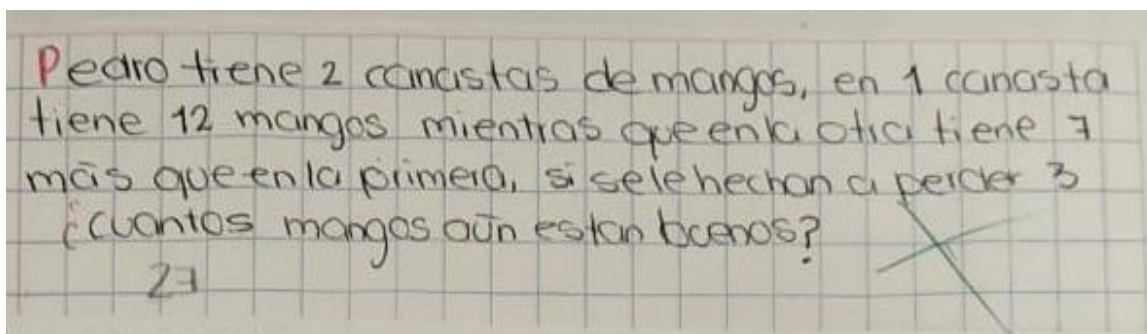 Pedro tiene 2 canastas de mangos, en 1 canasta
tiene 12 mangos mientras que en la otra tiene 7
más que en la primera, si se le hechan a perder 3
¿cuantos mangos aún estan buenos?
27